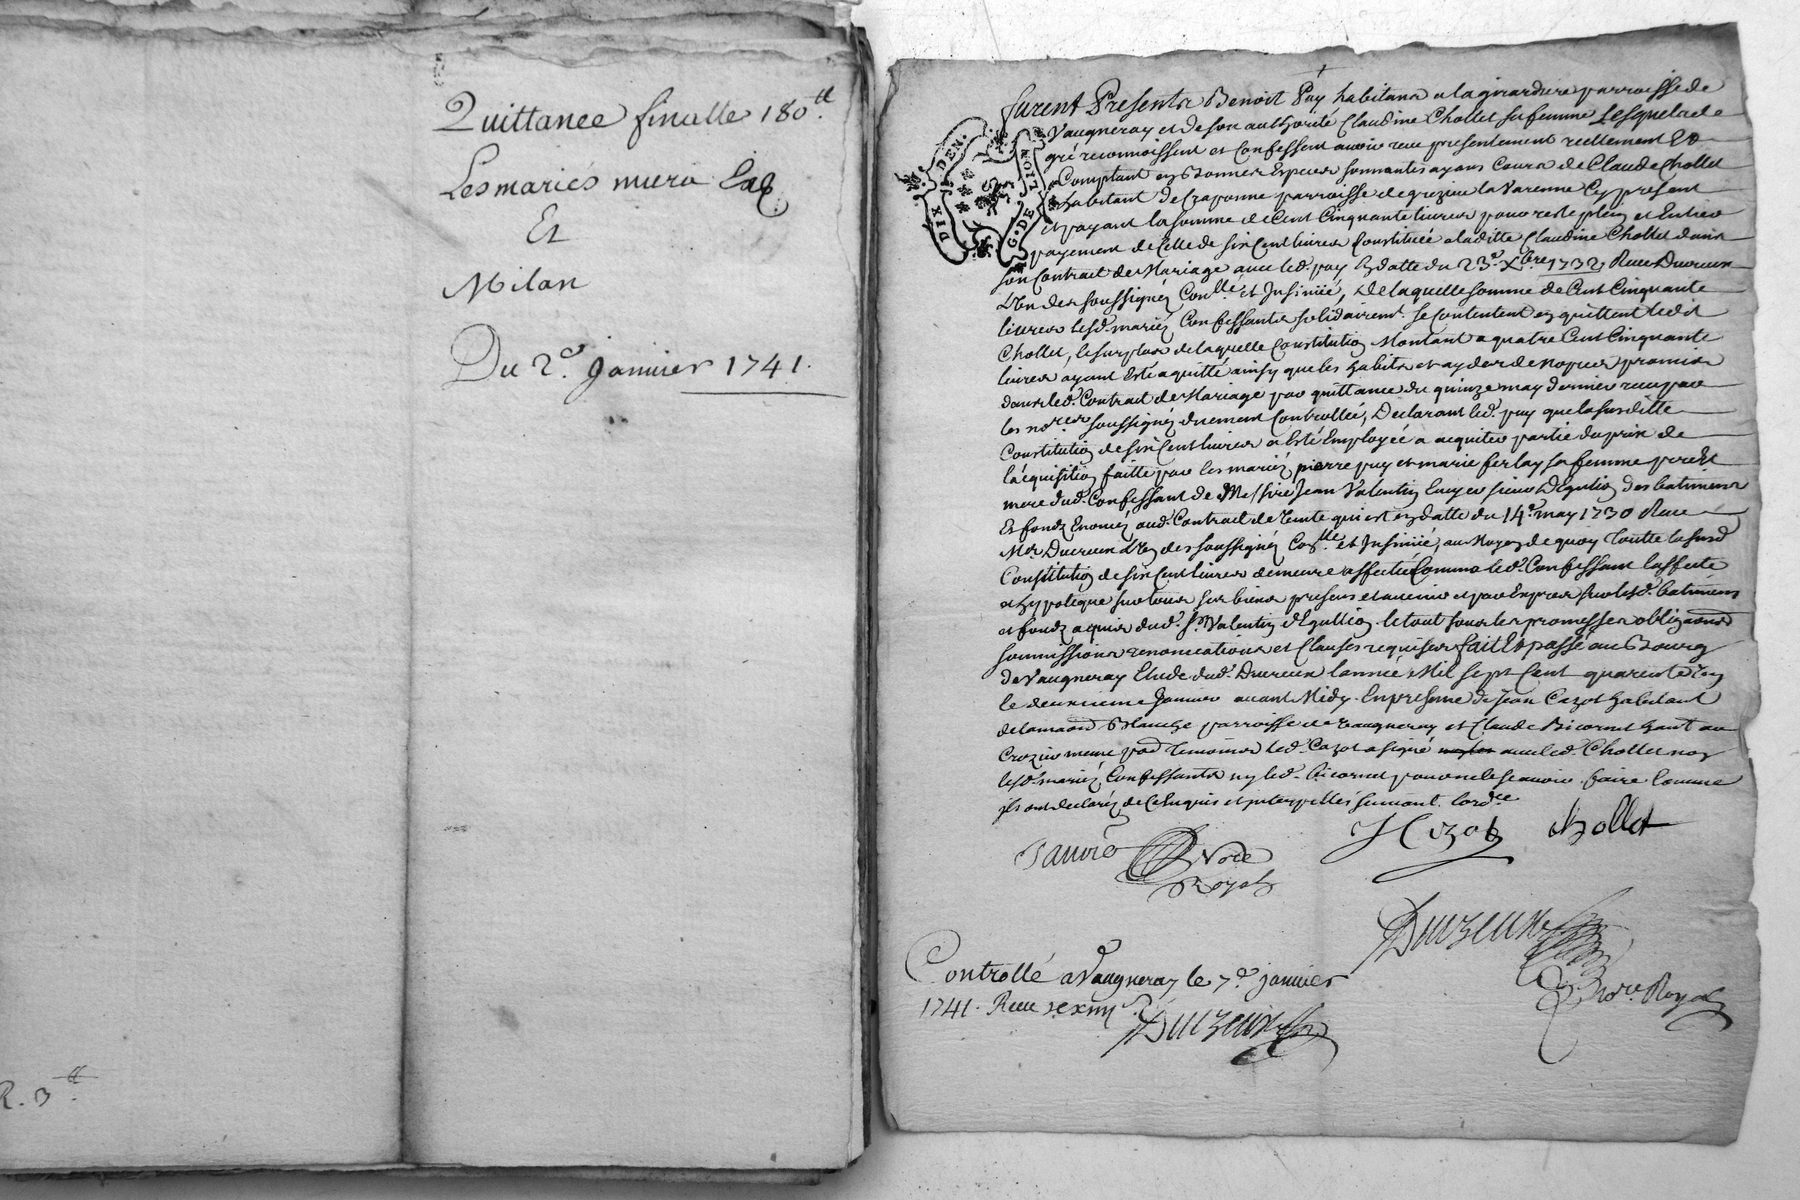 Quittance finalle 180.ᵗᵗ
Les mariés mura
Et
Milan
Du 2.ᵉ Janvier 1741.
R. 3.ᵗᵗ
DIX DEN.
G. DE LION
furent Presents Benoit Puy habitans a la girardiere parroisse de
Vaugneray et de son authorité Claudine Chollet sa femme Lesquels de
gré reconnoissent et Confessent avoir receu presentement reellement Et
Comptant en bonnes Especes sonnantes ayans cours de Claude Chollet
habitant de Craponne parroisse de grezieu la Varenne Cy present
et payant la somme de Cent Cinquante livres pour reste plein et Entier
payement de Celle de six Cent livres Constituée a laditte Claudine Chollet dans
son Contrat de Mariage avec led. puy En datte du 23.ᵉ Xbre 1732 Receu Ducreux
L'un des soussignéz Con.ˡˡᵉ et Insinüé, de laquelle somme de Cent Cinquante
livres lesd. mariéz Confessants solidairem.ᵗ se Contentent en quittent ledit
Chollet, le surplus de laquelle Constitution Montant a quatre Cent Cinquante
livres ayant Esté aquitté ainsy que les habits et de nopces promis
dans led. Contrat de Mariage par quittance du quinze may dernier receu par
les no.ʳᵉˢ soussignéz duement Controllée, Declarant led. puy que la susditte
Constitution de six Cent livres a Esté Employée a acquiter partie du prix de
l'aequisition faitte par les mariéz pierre puy et marie ferlay sa femme pere Et
mere dud. Confessant de Messire Jean Valentin Ecuyer sieur Degulion des batimens
Et fondz Enoncéz aud. Contrat de vente qui est en datte du 14.ᵉ may 1730 Receu
M.ᵉ Ducreux l'un des soussignéz Con.ˡˡᵉ et Insinüé, au Moyen de quoy toutte la susd
Constitution de six Cent livres demeure affectée Comme led. Confessant l'affecte
et hypoteque sur tous ses biens presens et avenir et par Exprés sur lesd. batimens
et fondz aquis dud. S.ʳ Valentin d'Egullion le tout sous les promesses obligaõns
soumissions renonciations et Clauses requises fait Et passé au Bourg
de Vaugneray Etude dud. Ducreux l'année Mil sept Cent quarente Un
le deuxieme Janvier avant Midy. En presence de Jean Cazot habitant
de la maison blanche parroisse de Vaugneray et Claude Bicornet habt au
Crozier meme par. Temoins led. Cazot a signé avec led. Chollet non
lesd. mariéz Confessants ny led. Bicornet pour ne le scavoir faire Comme
ils ont declaréz de Ce Enquis et Interpellés suivant l'ord.ᶜᵉ
J Cazot Chollet
No.ʳᵉ
Royal
Ducreux
No.ʳᵉ Royal
Controllé a Vaugneray le 7.ᵉ janvier
1741. Receu
Ducreux